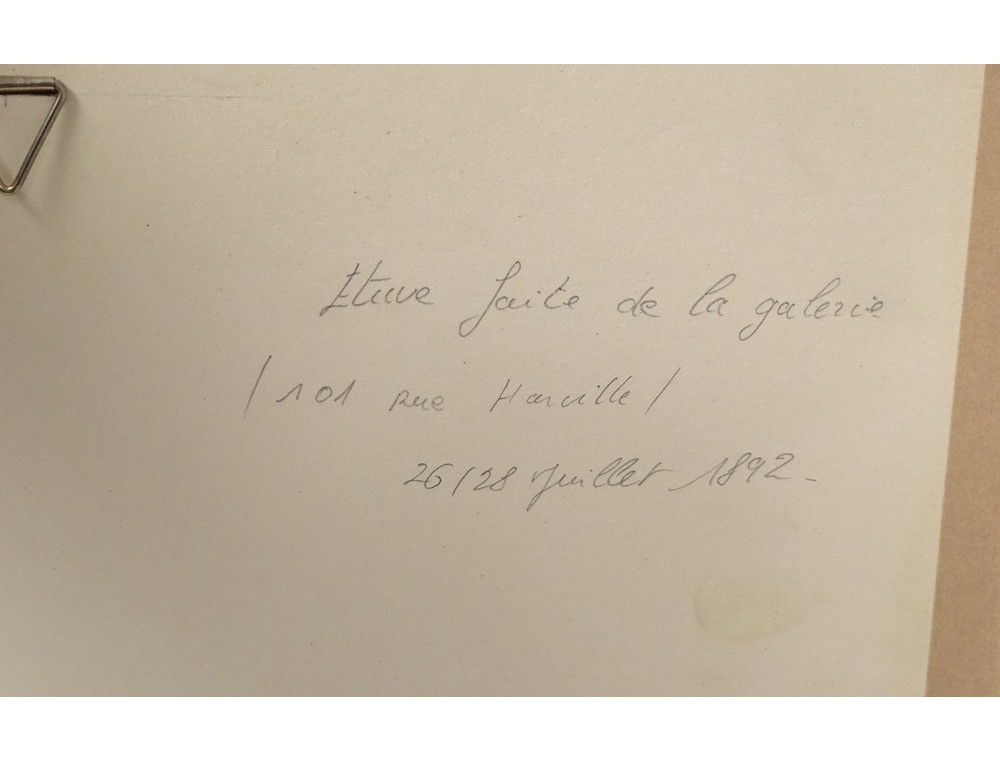 Etuve faite de la galerie
/ 101 Rue Harville /
26/28 Juillet 1892 -